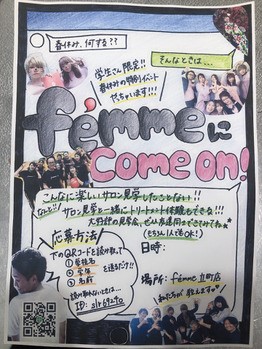 春休み、何する??
そんなときは…
学生さん限定!!
春休みの特別イベント
やっちゃいます!!!
fémmeに
Come on!
こんなに楽しいサロン見学したことない!!
なんと!! サロン見学と一緒にトリートメント体験もできる!!!
大好評の見学会、ぜひ友達同士できてみてね
(もちろん1人でもOK!)
応募方法
下のQRコードを読み取って
①学校名
②学年
③名前
を送るだけ!!
読み取れない方は…
ID:
日時:
場所: fémme 立町店
私たちが教えます